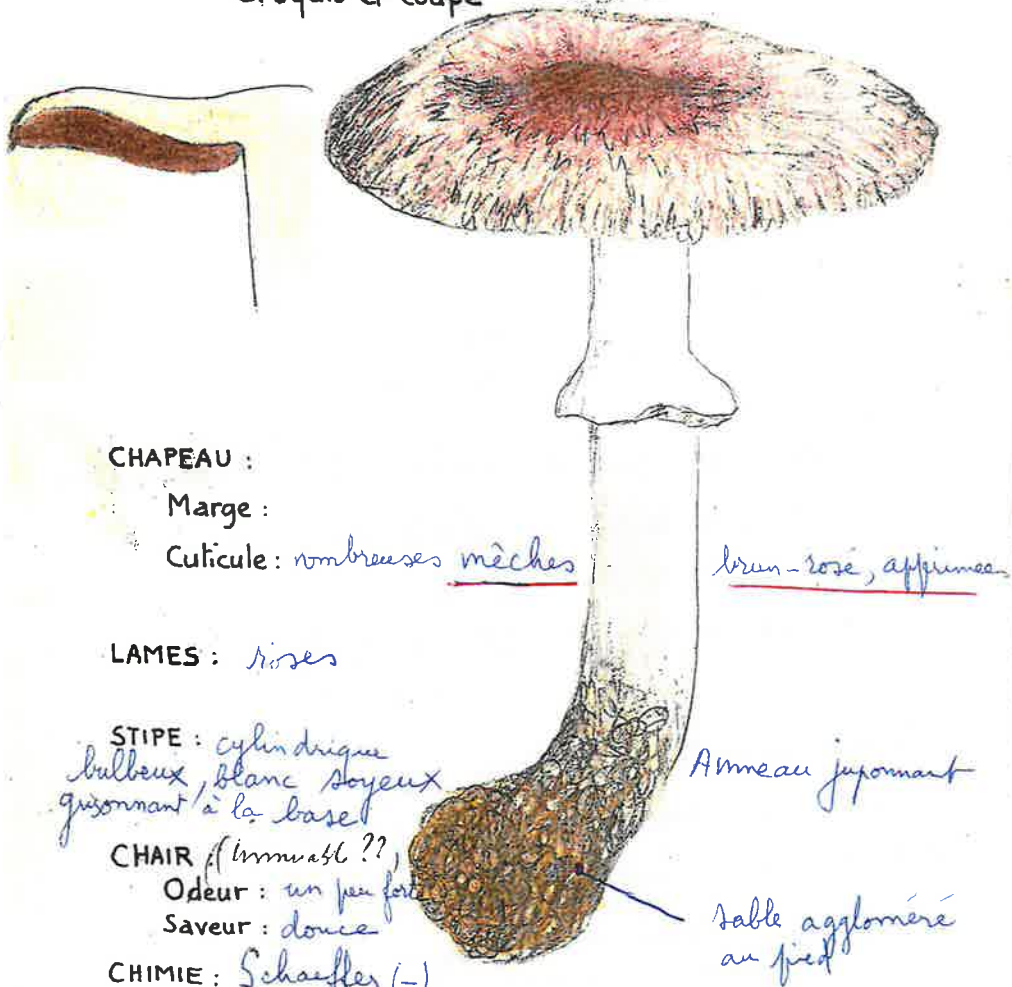 Croquis et coupe
CHAPEAU :
Marge :
Cuticule : nombreuses mèches brun-rosé, apprimées
LAMES : roses
STIPE : cylindrique
bulbeux, blanc soyeux
grisonnant à la base
Anneau juponnant
CHAIR : (immuable ??,
Odeur : un peu forte
Saveur : douce
sable aggloméré
au pied
CHIMIE : Schaeffer (-)